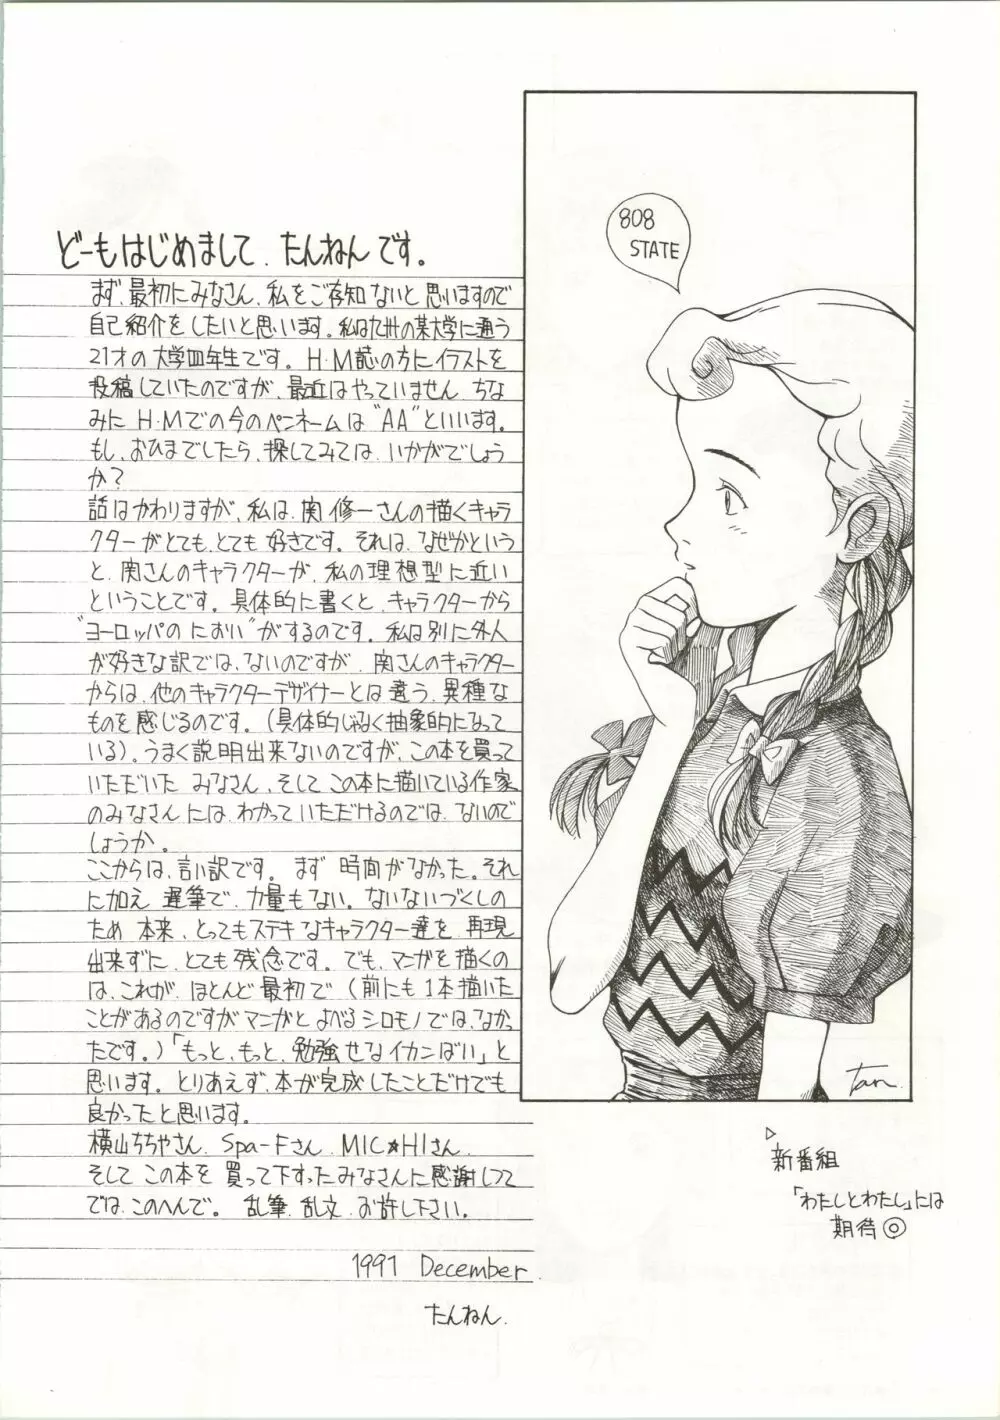 どーもはじめまして、たんねんです。
まず、最初にみなさん、私をご存知ないと思いますので
自己紹介をしたいと思います。私は九州の某大学に通う
21才の大学四年生です。H・M誌の方にイラストを
投稿していたのですが、最近はやっていません。ちな
みに H・Mでの今のペンネームは"AA"といいます。
もし、おひまでしたら、探してみては、いかがでしょう
か?
話はかわりますが、私は、関 修一さんの描くキャラ
クターがとても、とても 好きです。それは、なぜかという
と、関さんのキャラクターが、私の理想型に近い
ということです。具体的に書くと、キャラクターから
"ヨーロッパの におい"がするのです。私は別に外人
が好きな訳では、ないのですが、関さんのキャラクター
からは、他のキャラクターデザイナーとは違う、異種な
ものを感じるのです。(具体的じゃなく抽象的になって
いる)。うまく説明出来ないのですが、この本を買って
いただいた みなさん、そして この本に描いている作家
のみなさんには、わかって いただけるのでは、ないので
しょうか。
ここからは、言い訳です。まず 時間がなかった。それ
に加え 遅筆で、力量もない。ないないづくしの
ため 本来、とってもステキなキャラクター達を、再現
出来ずに、とても 残念です。でも、マンガを描くの
は、これが、ほとんど 最初で (前にも1本描いた
ことがあるのですがマンガと よべる シロモノでは、なかっ
たです。)「もっと、もっと、勉強せなイカンばい」と
思います。とりあえず、本が完成したことだけでも
良かったと思います。
横山ちちやさん、Spa-Fさん、MIC★HIさん、
そして この本を 買って下すった みなさんに感謝しつつ
では、このへんで。 乱筆、乱文、お許し下さい。
1991 December
たんねん.
808
STATE
Tan.
▷
新番組
「わたしとわたし」には
期待◎